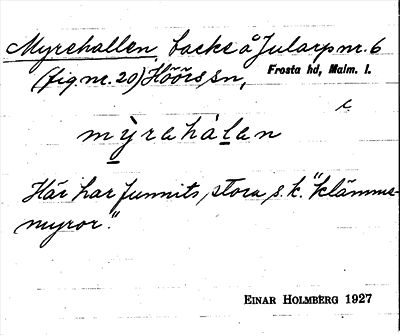 Myrehallen, backe å Jularp nr. 6
(fig. nr. 20) Höörs sn, Frosta hd, Malm. l.
mỳrehálen
Här har funnits stora, s.k. "klämme-
myror."
EINAR HOLMBERG 1927